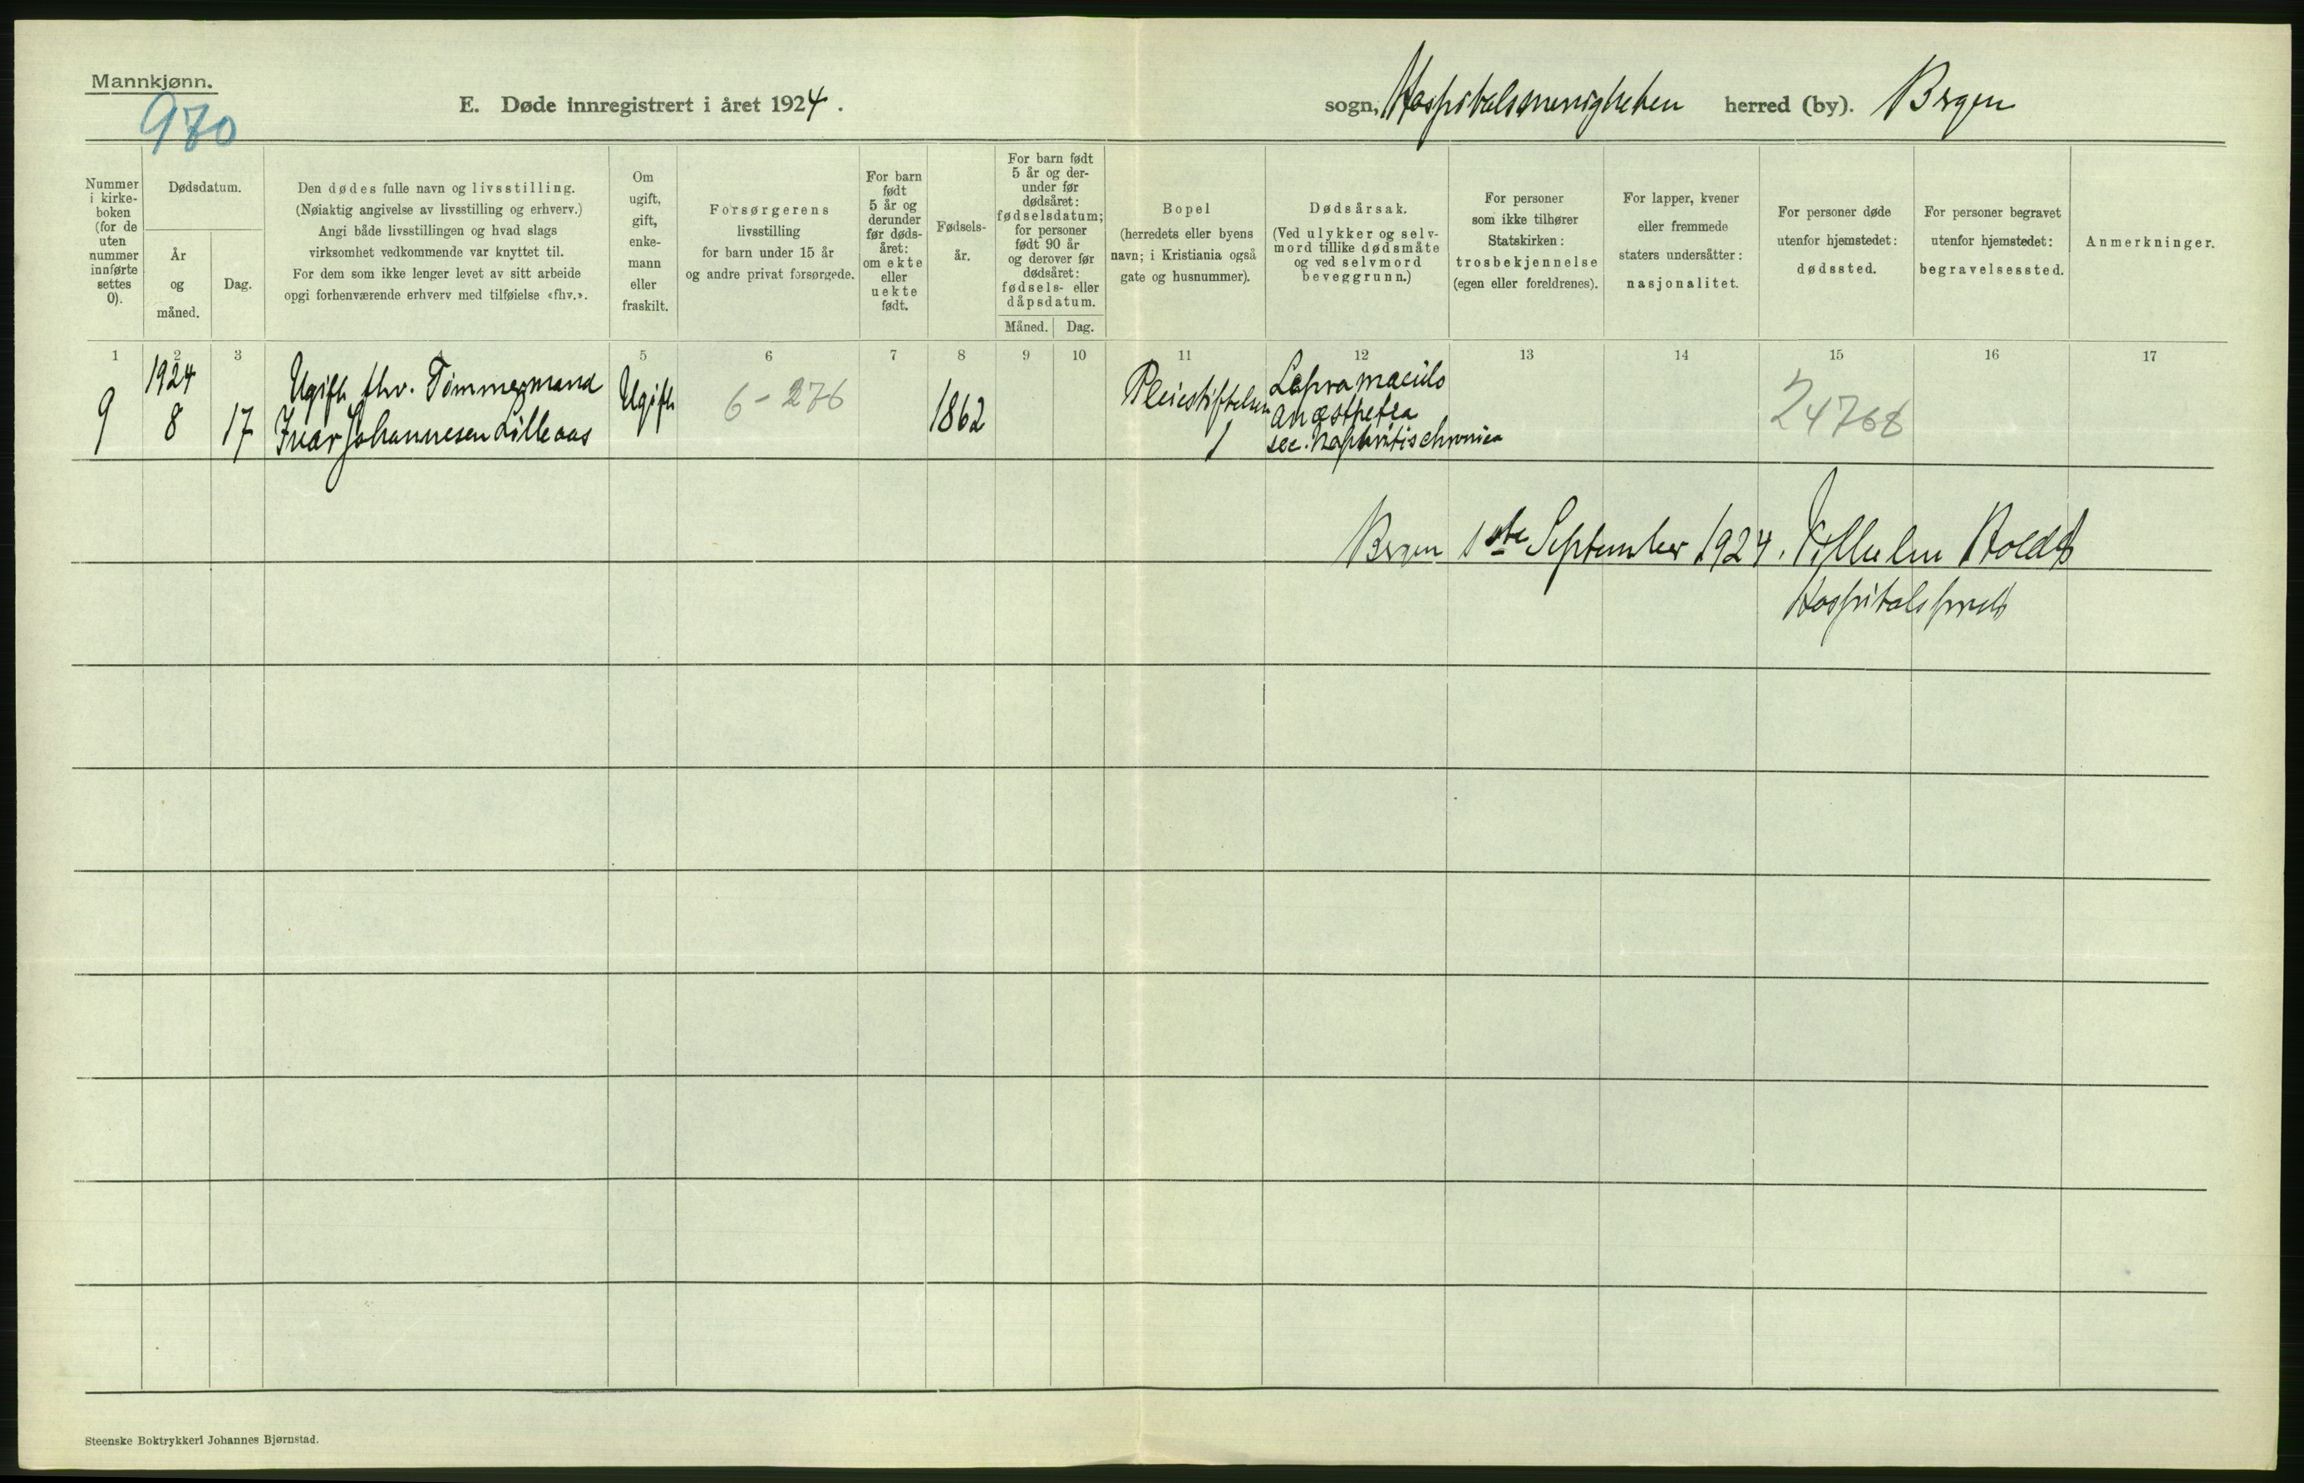 Mannkjønn.
970
E. Døde innregistrert i året 1924.
sogn, Hospitalsmenigheten herred (by). Bergen
Nummer
i kirke-
boken
(for de
uten
nummer
innførte
settes
0).
Dødsdatum.
År
og
måned.
Dag.
Den dødes fulle navn og livsstilling.
(Nøiaktig angivelse av livsstilling og erhverv.)
Angi både livsstillingen og hvad slags
virksomhet vedkommende var knyttet til.
For dem som ikke lenger levet av sitt arbeide
opgi forhenværende erhverv med tilføielse «fhv.».
Om
ugift,
gift,
enke-
mann
eller
fraskilt.
Forsørgerens
livsstilling
for barn under 15 år
og andre privat forsørgede.
For barn
født
5 år og
derunder
før døds-
året:
om ekte
eller
uekte
født.
Fødsels-
år.
For barn født
5 år og der-
under før
dødsåret:
fødselsdatum;
for personer
født 90 år
og derover før
dødsåret:
fødsels- eller
dåpsdatum.
Måned.
Dag.
Bopel
(herredets eller byens
navn; i Kristiania også
gate og husnummer).
Dødsårsak.
(Ved ulykker og selv-
mord tillike dødsmåte
og ved selvmord
beveggrunn.)
For personer
som ikke tilhører
Statskirken:
trosbekjennelse
(egen eller foreldrenes).
For lapper, kvener
eller fremmede
staters undersåtter:
nasjonalitet.
For personer døde
utenfor hjemstedet:
dødssted.
For personer begravet
utenfor hjemstedet:
begravelsessted.
Anmerkninger.
1 2 3 4 5 6 7 8 9 10 11 12 13 14 15 16 17
9
1924
8
17
Ugift fhv. Tømmermand
Ivar Johannesen Lilleaas
Ugift
6-276
1862
Pleiestiftelsen
1
Lepra maculo
anæsthetea
sec. Nephritis chronica
24768
Bergen 1ste September 1924. Vilhelm Holdt
Hospitalsprest
Steenske Boktrykkeri Johannes Bjørnstad.